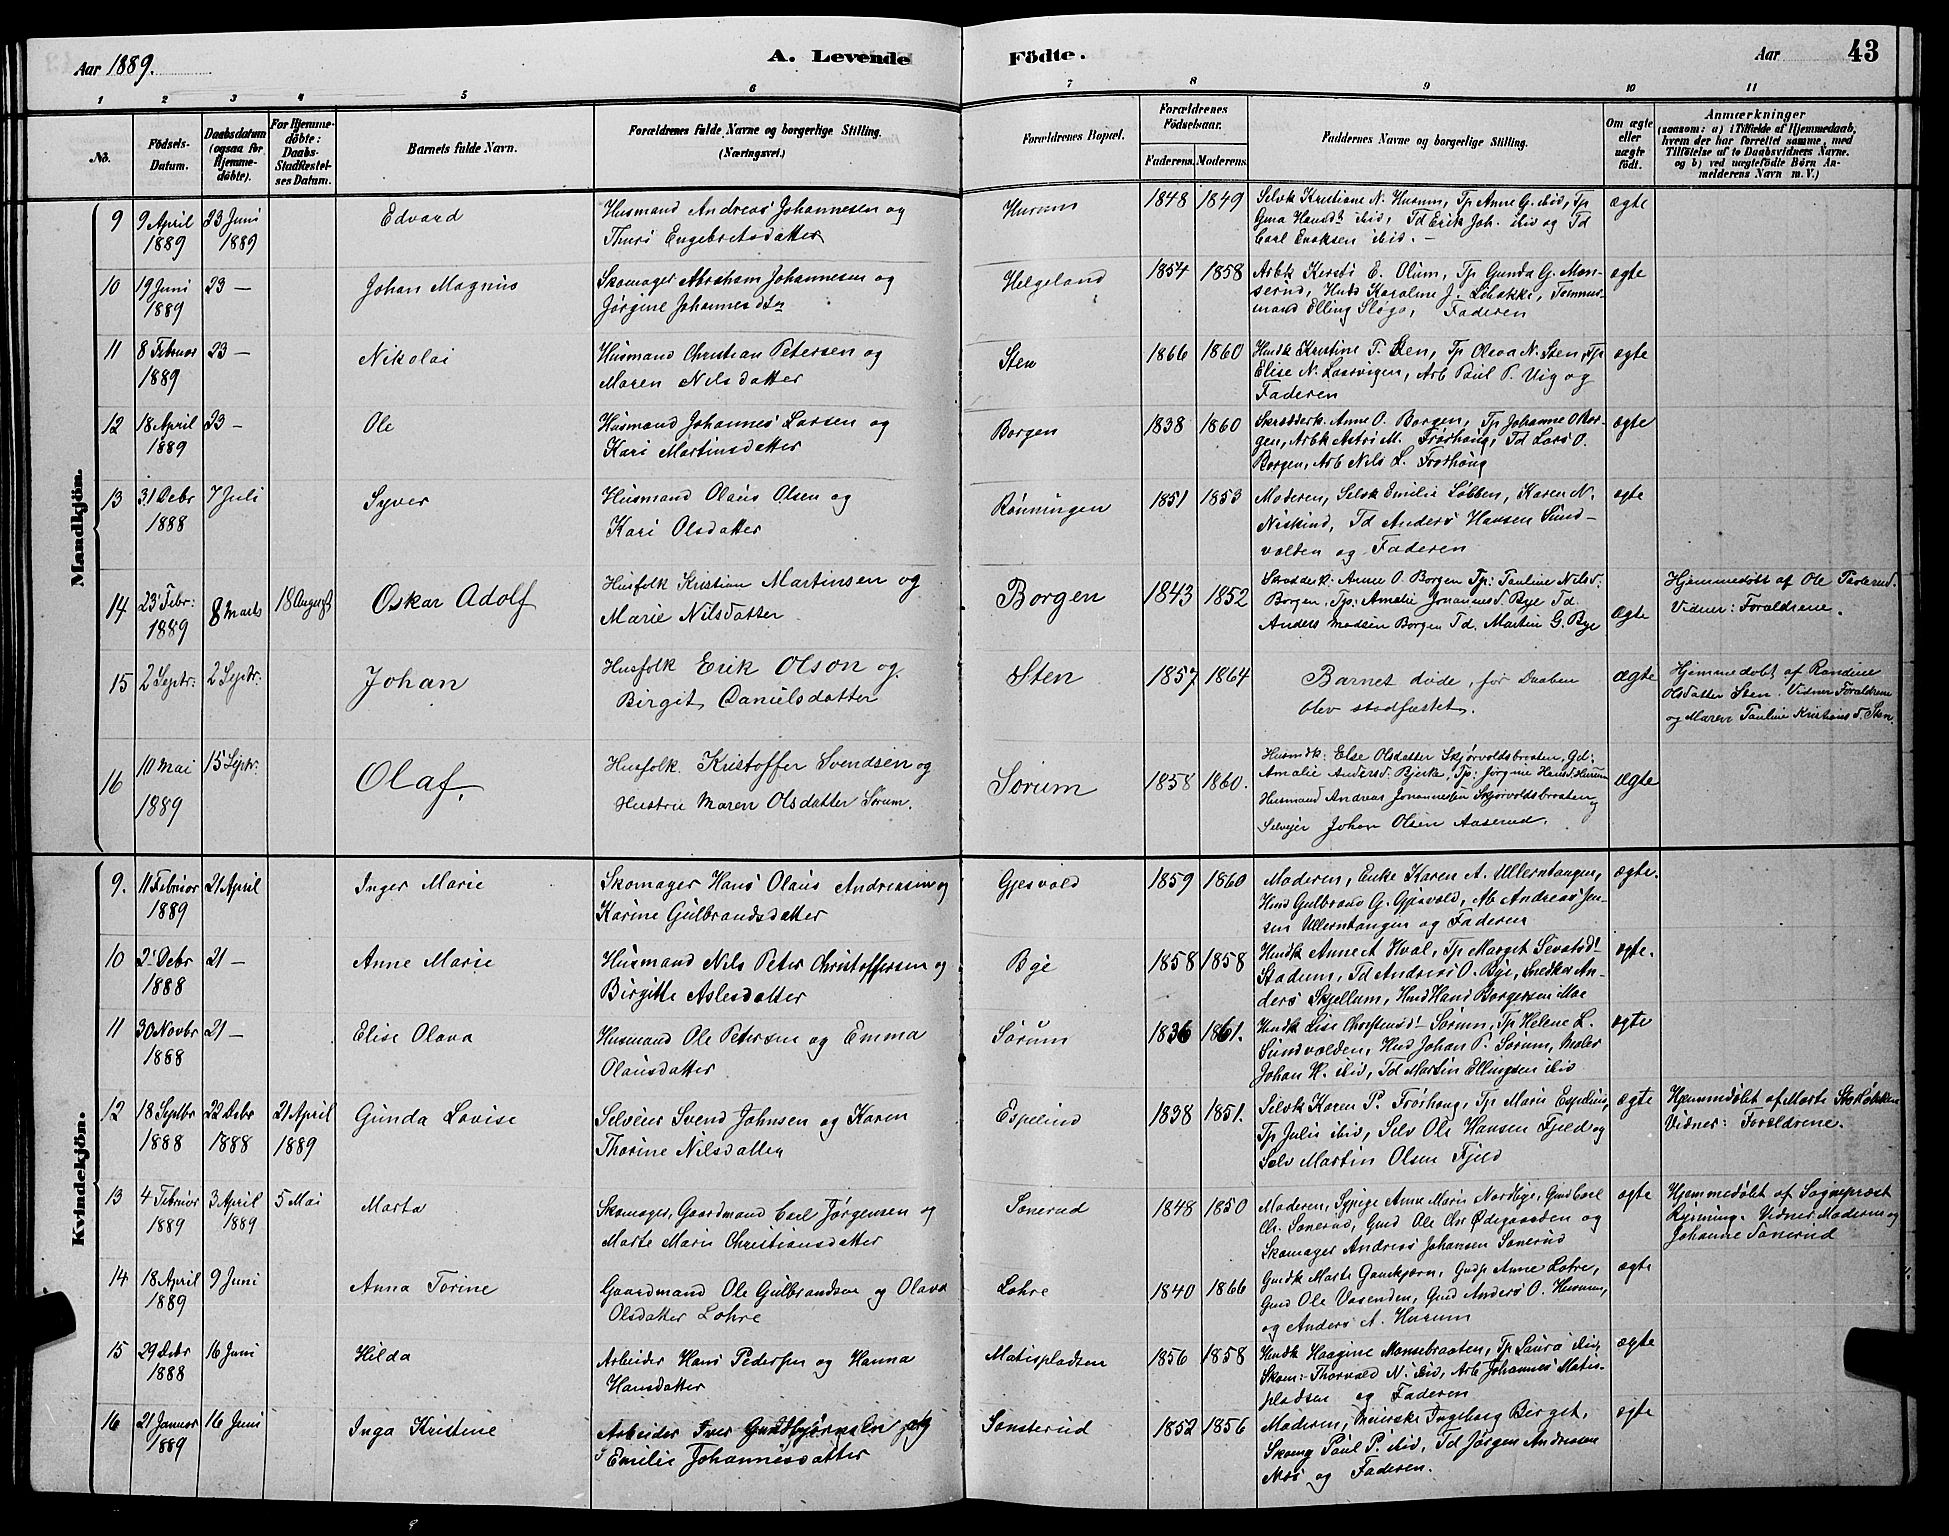 Aar 1889.
A. Levende
Födte.
Aar
43
1 2 3 4 5 6 7 8 9 10 11
No.
Födsels-Datum.
Daabsdatum (ogsaa for Hjemme-döbte).
For Hjemme-döbte: Daabs-Stadfæstel-ses Datum.
Barnets fulde Navn.
Forældrenes fulde Navne og borgerlige Stilling. (Næringsvei.)
Forældrenes Bopæl.
Forældrenes Födselsaar.
Faderens. Moderens.
Faddernes Navne og borgerlige Stilling.
Om ægte eller uægte födt.
Anmærkninger
(saasom: a) i Tilfælde af Hjemmedaab,
hvem der har forrettet samme, med
Tilföielse af to Daabsvidners Navne.
og b) ved uægtefödte Börn An-
melderens Navn m. V.)
Mandkjön.
9 9 April 1889 23 Juni 1889 Edvard
Husmand Andreas Johannesen og
Thurø Engebretsdatter
Husum 1848 1849
Selvk Kristiane N. Husum, Tp Anne G. ibid, Tp
ibid, Td Erik Joh. ibid og Td
Carl Enoksen ibid. –
ægte
10 19 Juni 1889 23 – Johan Magnus
Skomager Abraham Johannesen og
Jørgine Johannesdtr
Helgeland 1854 1858
Arbk Kersti E. Olum, Tp Gunda G. Mon-
serud, Husb Karoline J. Tømmer-
mand Elling Faderen
ægte
11 8 Februar 1889 23 – Nikolai
Husmand Christian Petersen og
Maren Nilsdatter
Sten 1866 1860
Husdk Kristine T. Sten, Tp Olava N. Sten, Tp
Elise N. Arb Paul P. Vig og
Faderen
ægte
12 18 April 1889 23 – Ole
Husmand Johannes Larsen og
Kari Martinsdatter
Borgen 1838 1860
Skrædderk. Anne O. Borgen, Tp Johanne O Bor-
gen, Arbk Astri M. Frørhaug, Td Lars O.
Borgen, Arb Nils L. Frørhaug
ægte
13 31 Debr 1888 7 Juli Syver
Husmand Olaus Olsen og
Kari Olsdatter
Rønningen 1851 1853
Moderen, Selvk Emilie Løbben, Karen N.
Td Anders Hansen Sund-
volden og Faderen
ægte
14 23 Febr: 1889 8 Marts 18 August Oskar Adolf
Husfolk Kristian Martinsen og
Marie Nilsdatter
Borgen 1843 1852
Skrædderk: Anne O Borgen Tp: Pauline Nilsd.
Borgen, Tp: Amalie Johannesd. Bye Td.
Anders Madsen Borgen Td. Martin G. Bye
ægte
Hjemmedøbt af Ole
Vidner: Forældrene.
15 2 Septr: 2 Septr: Johan
Husfolk Erik Olson og
Birgit Danielsdatter
Sten 1857 1864
Barnet døde, før Daaben
blev stadfæstet.
ægte
Hjemmedøbt af Randine
Olsdatter Sten. Vidner Forældrene
og Maren Pauline Kristiansd. Sten.
16 10 Mai 1889 15 Septr: Olaf.
Husfolk Kristoffer Svendsen og
Hustru Maren Olsdatter Sørum.
Sørum 1858 1860.
Husmdk: Else Olsdatter Skjørvoldsbraaten, Gd:
Amalie Andersd: Bjerke, Tp: Jørgine Hansd. Husum
Husmand Andreas Johannesen Skjørvoldsbraaten og
Selveier Johan Olsen Aaserud.
ægte
Kvindekjön.
9. 11 Februar 1889 21 April Inger Marie
Skomager Hans Olaus Andreassen og
Karine Gulbrandsdatter
Gjesvold 1859 1860
Moderen, Enke Karen A. Ullerntangen,
Husd Gulbrand G. Gjesvold, Arb Andreas Jen-
sen Ullerntangen og Faderen
ægte.
10 2 Debr 1888 21 – Anne Marie
Husmand Nils Peter Christoffersen og
Birgitte Aslesdatter
Bye 1858 1858
Husdk Anne A Hval, Tp Marget Sevatsd
Stadum, Td Andreas O. Bye, Snedker An-
ders Skjellum, Husd Hans Borgersen Moe
ægte.
11 30 Novbr 1888 21 – Elise Olava
Husmand Ole Petersen og Emma
Olausdatter
Sørum 1836 1861.
Husdk Lise Christensd Sørum, Tp Helene L.
Sundvolden, Husd Johan P. Sørum, Maler
Johan H. ibid, Td Martin Ellingsen ibid
ægte
12 18 Septbr 1888 22 Debr 1888 21 April 1889 Gunda Lovise
Selveier Svend Johnsen og Karen
Thorine Nilsdatter
Espelund 1838 1851.
Selvk Karen P. Frørhaug, Tp Marie Espelund,
Tp Julie ibid, Selv Ole Hansen Fjeld og
Selv Martin Olsen Fjeld
ægte
Hjemmdøbt af Marte
Vidner: Forældrene.
13 4 Februar 1889 3 April 1889 5 Mai Marta
Skomager, Gaardmand Carl Jørgensen og
Marte Marie Christiansdatter
Sønerud 1848 1850
Moderen, Sypige Anne Marie Nordbye, Gmd Carl
Chr. Sønerud, Gmd Ole Chr Ødegaarden og
Skomager Andreas Johansen Sønerud
ægte
Hjemmedøbt af Sogneprest
Vidner, Moderen og
Johanne Sønerud
14 18 April 1889 9 Juni Anna Torine
Gaardmand Ole Gulbrandsen og Olava
Olsdatter Lohre
Lohre 1840 1866
Gmdk Marte Gaaskjærn, Gmdp Anne Lohre,
Gmd Ole Vasenden, Gmd Anders O. Husum,
og Anders A. Husum
ægte
15 29 Debr 1888 16 Juni Hilda
Arbeider Hans Pedersen og Hanna
Hansdatter
Matispladsen 1856 1858
Husdk Haagine Monsebraaten, Tp Laura ibid,
Skom: Thorvald N. ibid, Arb Johannes Matis-
pladsen og Faderen
ægte
16 21 Januar 1889 16 Juni Inga Kristine
Arbeider Iver Gudbjørnsen og
Emilie Johannesdatter
Sønsterud 1852 1856
Moderen, Meierske Ingeborg Berget,
Skomg Paul P. ibid, Td Jørgen Andreasen
Næs og Faderen.
ægte